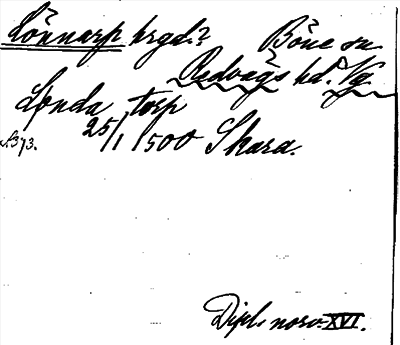 Lönnarp hrgd.? Böne sn
Redvägs hd. Vg.
Londa torp
25/1 1500 Skara.
s. 373.
Dipl. norv. XVI.